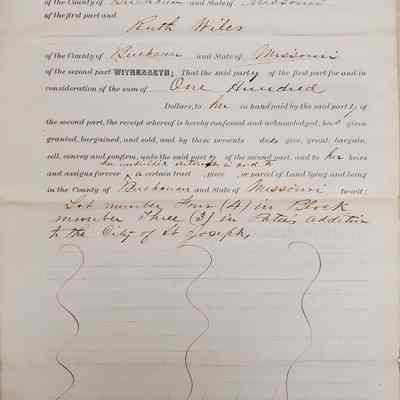 of the County of Buchanan and State of Missouri
of the first part and
Ruth Wiles
of the County of Buchanan and State of Missouri
of the second part WITNESSETH; That the said party of the first part for and in
consideration of the sum of One Hundred
Dollars, to her in hand paid by the said party of
the second part, The receipt whereof is hereby confessed and acknowledged, has given
granted, bargained, and sold, and by these presents does give, grant, bargain,
sell, convey and confirm, unto the said party of the second part, and to her heirs
her undivided interest in and to
and assigns forever a certain tract, piece, or parcel of Land lying and being
in the County of Buchanan and State of Missouri to-wit:
Lot number Four (4) in Block
number Three (3) in Patee's Addition
to the City of St Joseph,